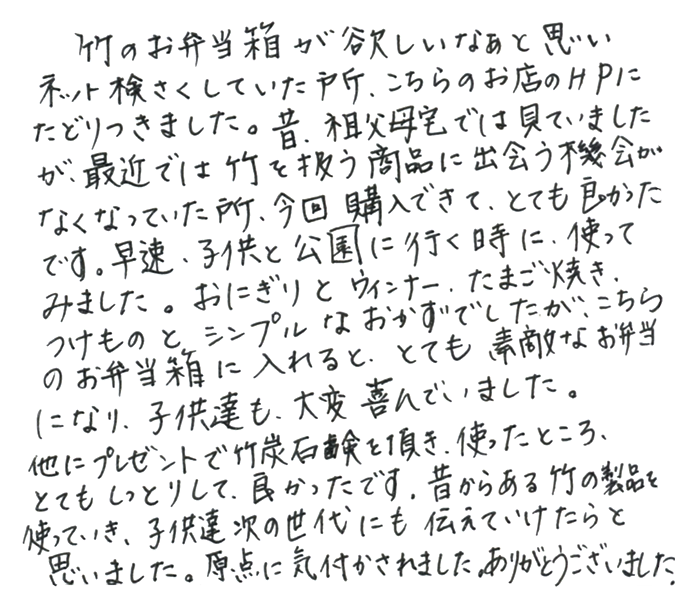 竹のお弁当箱が欲しいなぁと思い
ネット検さくしていた所、こちらのお店のHPに
たどりつきました。昔、祖父母宅では見ていました
が、最近では竹を扱う商品に出会う機会が
なくなっていた所、今回購入できて、とても良かった
です。早速、子供と公園に行く時に、使って
みました。おにぎりとウィンナー、たまご焼き、
つけものと、シンプルなおかずでしたが、こちら
のお弁当箱に入れると、とても素敵なお弁当
になり、子供達も、大変喜んでいました。
他にプレゼントで竹炭石鹸を頂き、使ったところ、
とてもしっとりして、良かったです。昔からある竹の製品を
使っていき、子供達次の世代にも伝えていけたらと
思いました。原点に気付かされました。ありがとうございました。